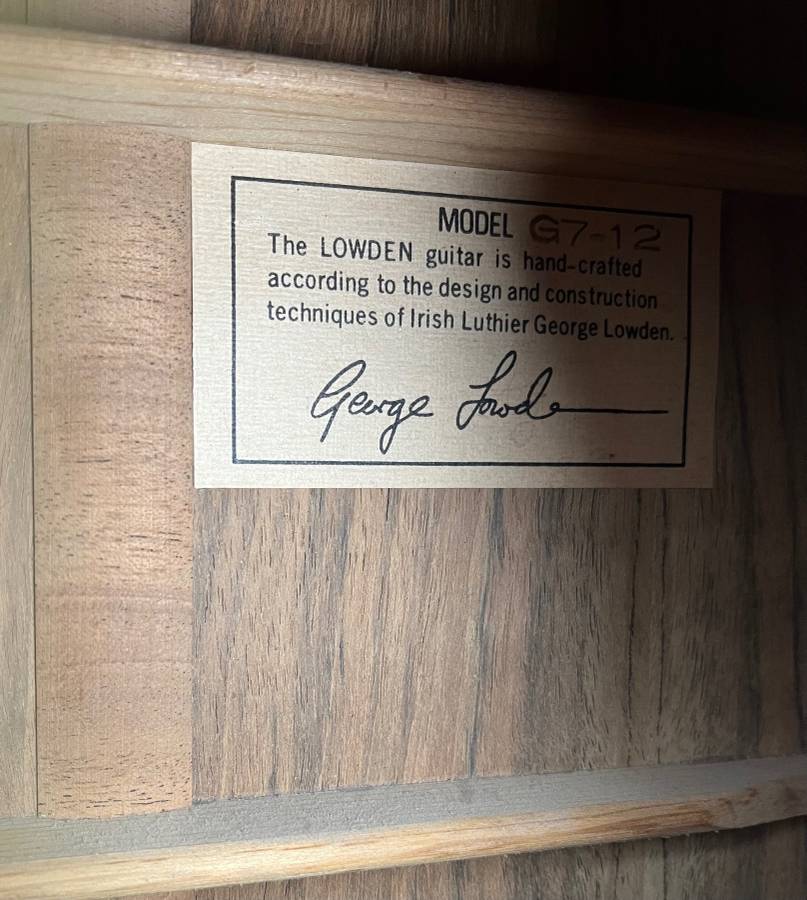 MODEL G7-12
The LOWDEN guitar is hand-crafted
according to the design and construction
techniques of Irish Luthier George Lowden.
George Lowden